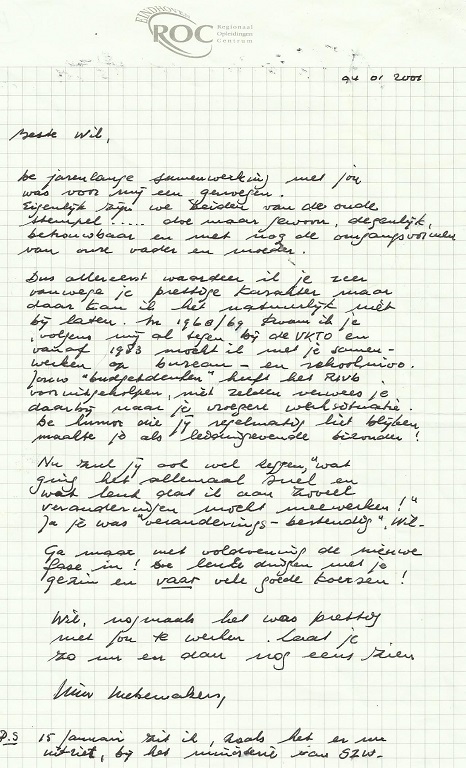 EINDHOVEN
ROC
Regionaal
Opleidingen
Centrum
04 01 2001
Beste Wil,
De jarenlange samenwerking met jou
was voor mij een genoegen.
Eigenlijk zijn we beiden van de oude
stempel .... doe maar gewoon, degelijk,
betrouwbaar en met nog de omgangsvormen
van onze vader en moeder.
Dus allereerst waardeer ik je zeer
vanwege je prettige karakter maar
daar kan ik het natuurlijk niet
bij laten. In 1968/69 kwam ik je
volgens mij al tegen bij de VKTO en
vanaf 1983 mocht ik met je samen-
werken op bureau- en schoolnivo.
Jouw "budgetdenken" heeft het
vooruitgeholpen, niet zelden verwees je
daarbij naar je vroegere werksituatie.
De humor die jij regelmatig liet blijken
maakte je als leidinggevende bizonder!
Nu zul jij ook wel zeggen, "wat
ging het allemaal snel en
wat leuk dat ik aan zoveel
veranderingen mocht meewerken!"
Ja je was "veranderings-bestendig", Wil.
Ga maar met voldoening de nieuwe
fase in! Doe leuke dingen met je
gezin en vaar vele goede koersen!
Wil, nogmaals het was prettig
met jou te werken. Laat je
zo nu en dan nog eens zien
P.S 15 januari zit ik, zoals het er nu
uitziet, bij het ministerie van SZW.